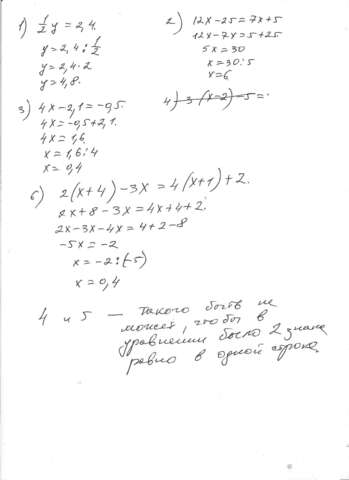 1) 1/2 y = 2,4.
y = 2,4 : 1/2
y = 2,4 · 2
y = 4,8.
2) 12x - 25 = 7x + 5
12x - 7x = 5 + 25
5x = 30
x = 30 : 5
x = 6
3) 4x - 2,1 = -0,5.
4x = -0,5 + 2,1.
4x = 1,6.
x = 1,6 : 4
x = 0,4
4) 3 (x-2) - 5 = .
6) 2(x+4) - 3x = 4(x+1) + 2.
2x + 8 - 3x = 4x + 4 + 2.
2x - 3x - 4x = 4 + 2 - 8
-5x = -2
x = -2 : (-5)
x = 0,4
4 и 5 — такого быть не
может, чтобы в
уравнении было 2 знака
равно в одной строке.